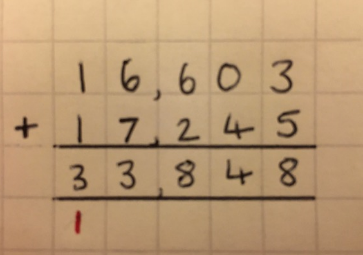 16,603
+ 17,245
33,848
1